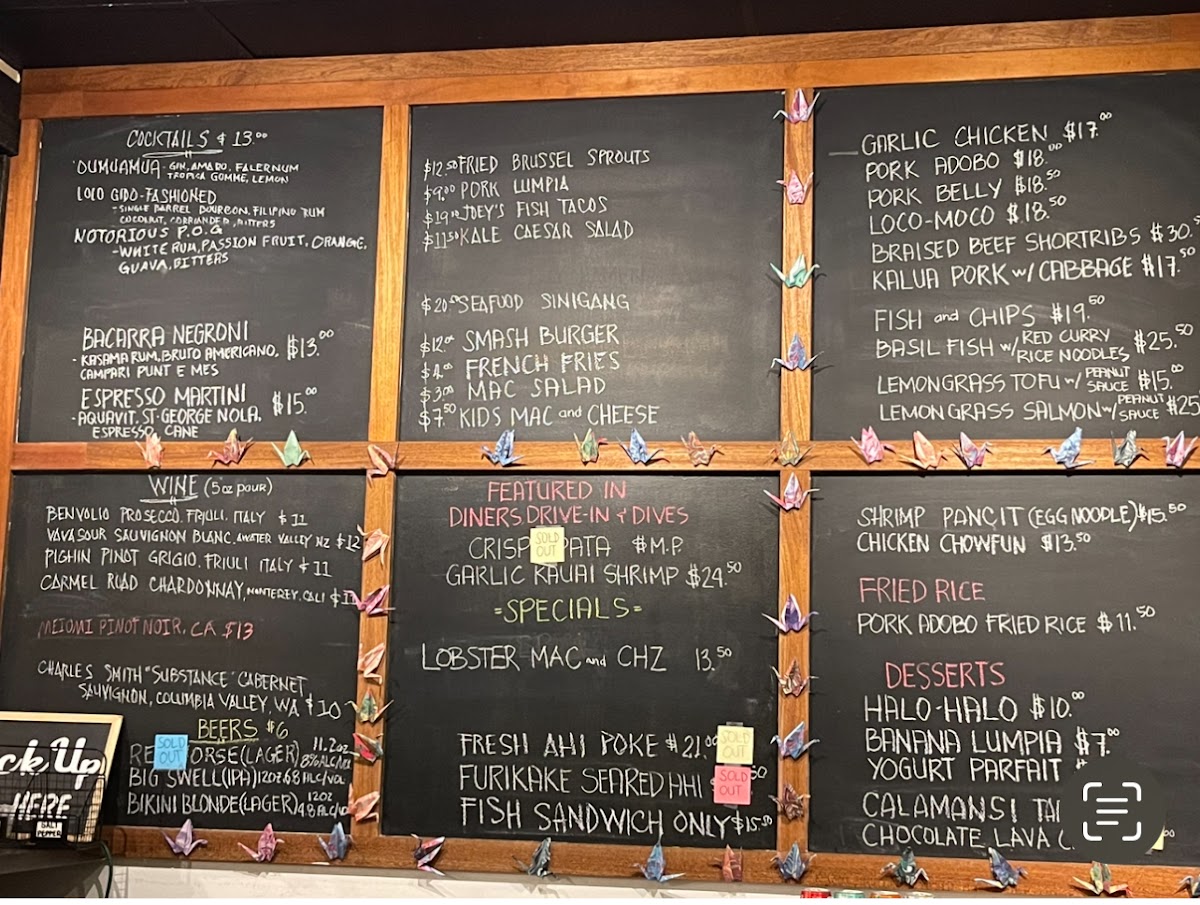 COCKTAILS $13.00
OUMUAMUA - GIN, AMARO, FALERNUM
TROPICA GOMME, LEMON
LOLO GIDO-FASHIONED
- SINGLE BARREL BOURBON, FILIPINO RUM
COCONUT, CORRIANDER, BITTERS
NOTORIOUS P.O.G
- WHITE RUM, PASSION FRUIT, ORANGE,
GUAVA, BITTERS
BACARRA NEGRONI
- KASAMA RUM, BRUTO AMERICANO, $13.00
CAMPARI PUNT E MES
ESPRESSO MARTINI
- AQUAVIT, ST. GEORGE NOLA, $15.00
ESPRESSO, CANE
$12.50 FRIED BRUSSEL SPROUTS
$9.00 PORK LUMPIA
JOEY'S FISH TACOS
$11.50 KALE CAESAR SALAD
SEAFOOD SINIGANG
$12.00 SMASH BURGER
FRENCH FRIES
$3.00 MAC SALAD
$7.50 KIDS MAC and CHEESE
GARLIC CHICKEN $17.00
PORK ADOBO $18.00
PORK BELLY $18.50
LOCO-MOCO $18.50
BRAISED BEEF SHORTRIBS $30.
KALUA PORK w/ CABBAGE $17.50
FISH and CHIPS $19.50
BASIL FISH w/ RED CURRY RICE NOODLES $25.50
LEMONGRASS TOFU w/ PEANUT SAUCE $15.00
LEMONGRASS SALMON w/ PEANUT SAUCE $25
WINE (5oz pour)
BENVOLIO PROSECCO, FRIULI, ITALY $11
VAVASOUR SAUVIGNON BLANC, AWATER VALLEY NZ $12
PIGHIN PINOT GRIGIO, FRIULI ITALY $11
CARMEL ROAD CHARDONNAY, MONTEREY, CALI
MEIOMI PINOT NOIR, CA $13
CHARLES SMITH "SUBSTANCE" CABERNET
SAUVIGNON, COLUMBIA VALLEY, WA $10
BEERS $6
SOLD OUT
RE ORSE (LAGER) 11.2oz
BIG SWELL (IPA) 12oz 6.8 ALC/VOL
BIKINI BLONDE (LAGER) 12oz
ck Up
HERE
SALT
PEPPER
FEATURED IN
DINERS, DRIVE-IN & DIVES
CRISP SOLD OUT PATA $M.P.
GARLIC KAUAI SHRIMP $24.50
=SPECIALS=
LOBSTER MAC and CHZ 13.50
FRESH AHI POKE $21.00 SOLD OUT
FURIKAKE SEARED AHI SOLD OUT 50
FISH SANDWICH ONLY $15.50
SHRIMP PANCIT (EGG NOODLE) $15.50
CHICKEN CHOWFUN $13.50
FRIED RICE
PORK ADOBO FRIED RICE $11.50
DESSERTS
HALO-HALO $10.00
BANANA LUMPIA $7.00
YOGURT PARFAIT $
CALAMANSI TA
CHOCOLATE LAVA C